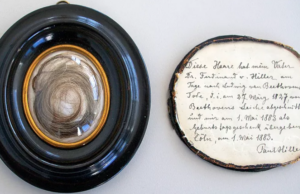 Diese Haare hat mein Vater
Dr. Ferdinand v. Hiller am
Tage nach Ludwig van Beethovens
Tode, d. i. am 27. März 1827 von
Beethovens Leiche abgeschnitten
und mir am 1. Mai 1883 als
Geburtstagsgeschenk übergeben
Cöln, am 1. Mai 1883.
Paul Hiller